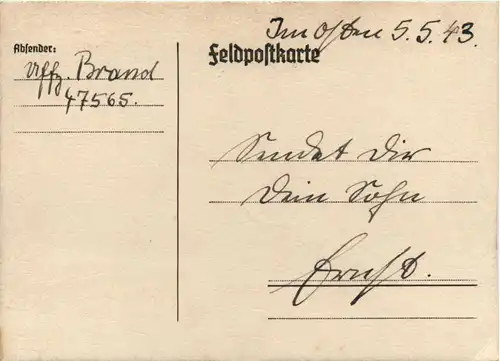 Im Osten 5.5.43.
Absender:
Feldpostkarte
Uffz. Brand
47565.
Sendet Dir
Dein Sohn
Ernst.